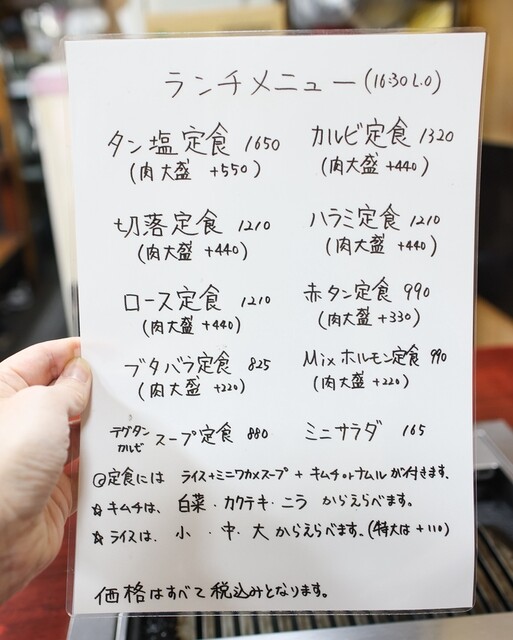 ランチメニュー (16:30 L.O)
タン塩定食 1650
(肉大盛 +550)
カルビ定食 1320
(肉大盛 +440)
切落定食 1210
(肉大盛 +440)
ハラミ定食 1210
(肉大盛 +440)
ロース定食 1210
(肉大盛 +440)
赤タン定食 990
(肉大盛 +330)
ブタバラ定食 825
(肉大盛 +220)
Mixホルモン定食 990
(肉大盛 +220)
テグタン
カルビ スープ定食 880
ミニサラダ 165
◎定食には ライス+ミニワカメスープ + キムチorナムルが付きます。
☆キムチは、白菜・カクテキ・ニラ からえらべます。
☆ライスは、小・中・大からえらべます。(特大は+110)
価格はすべて税込みとなります。